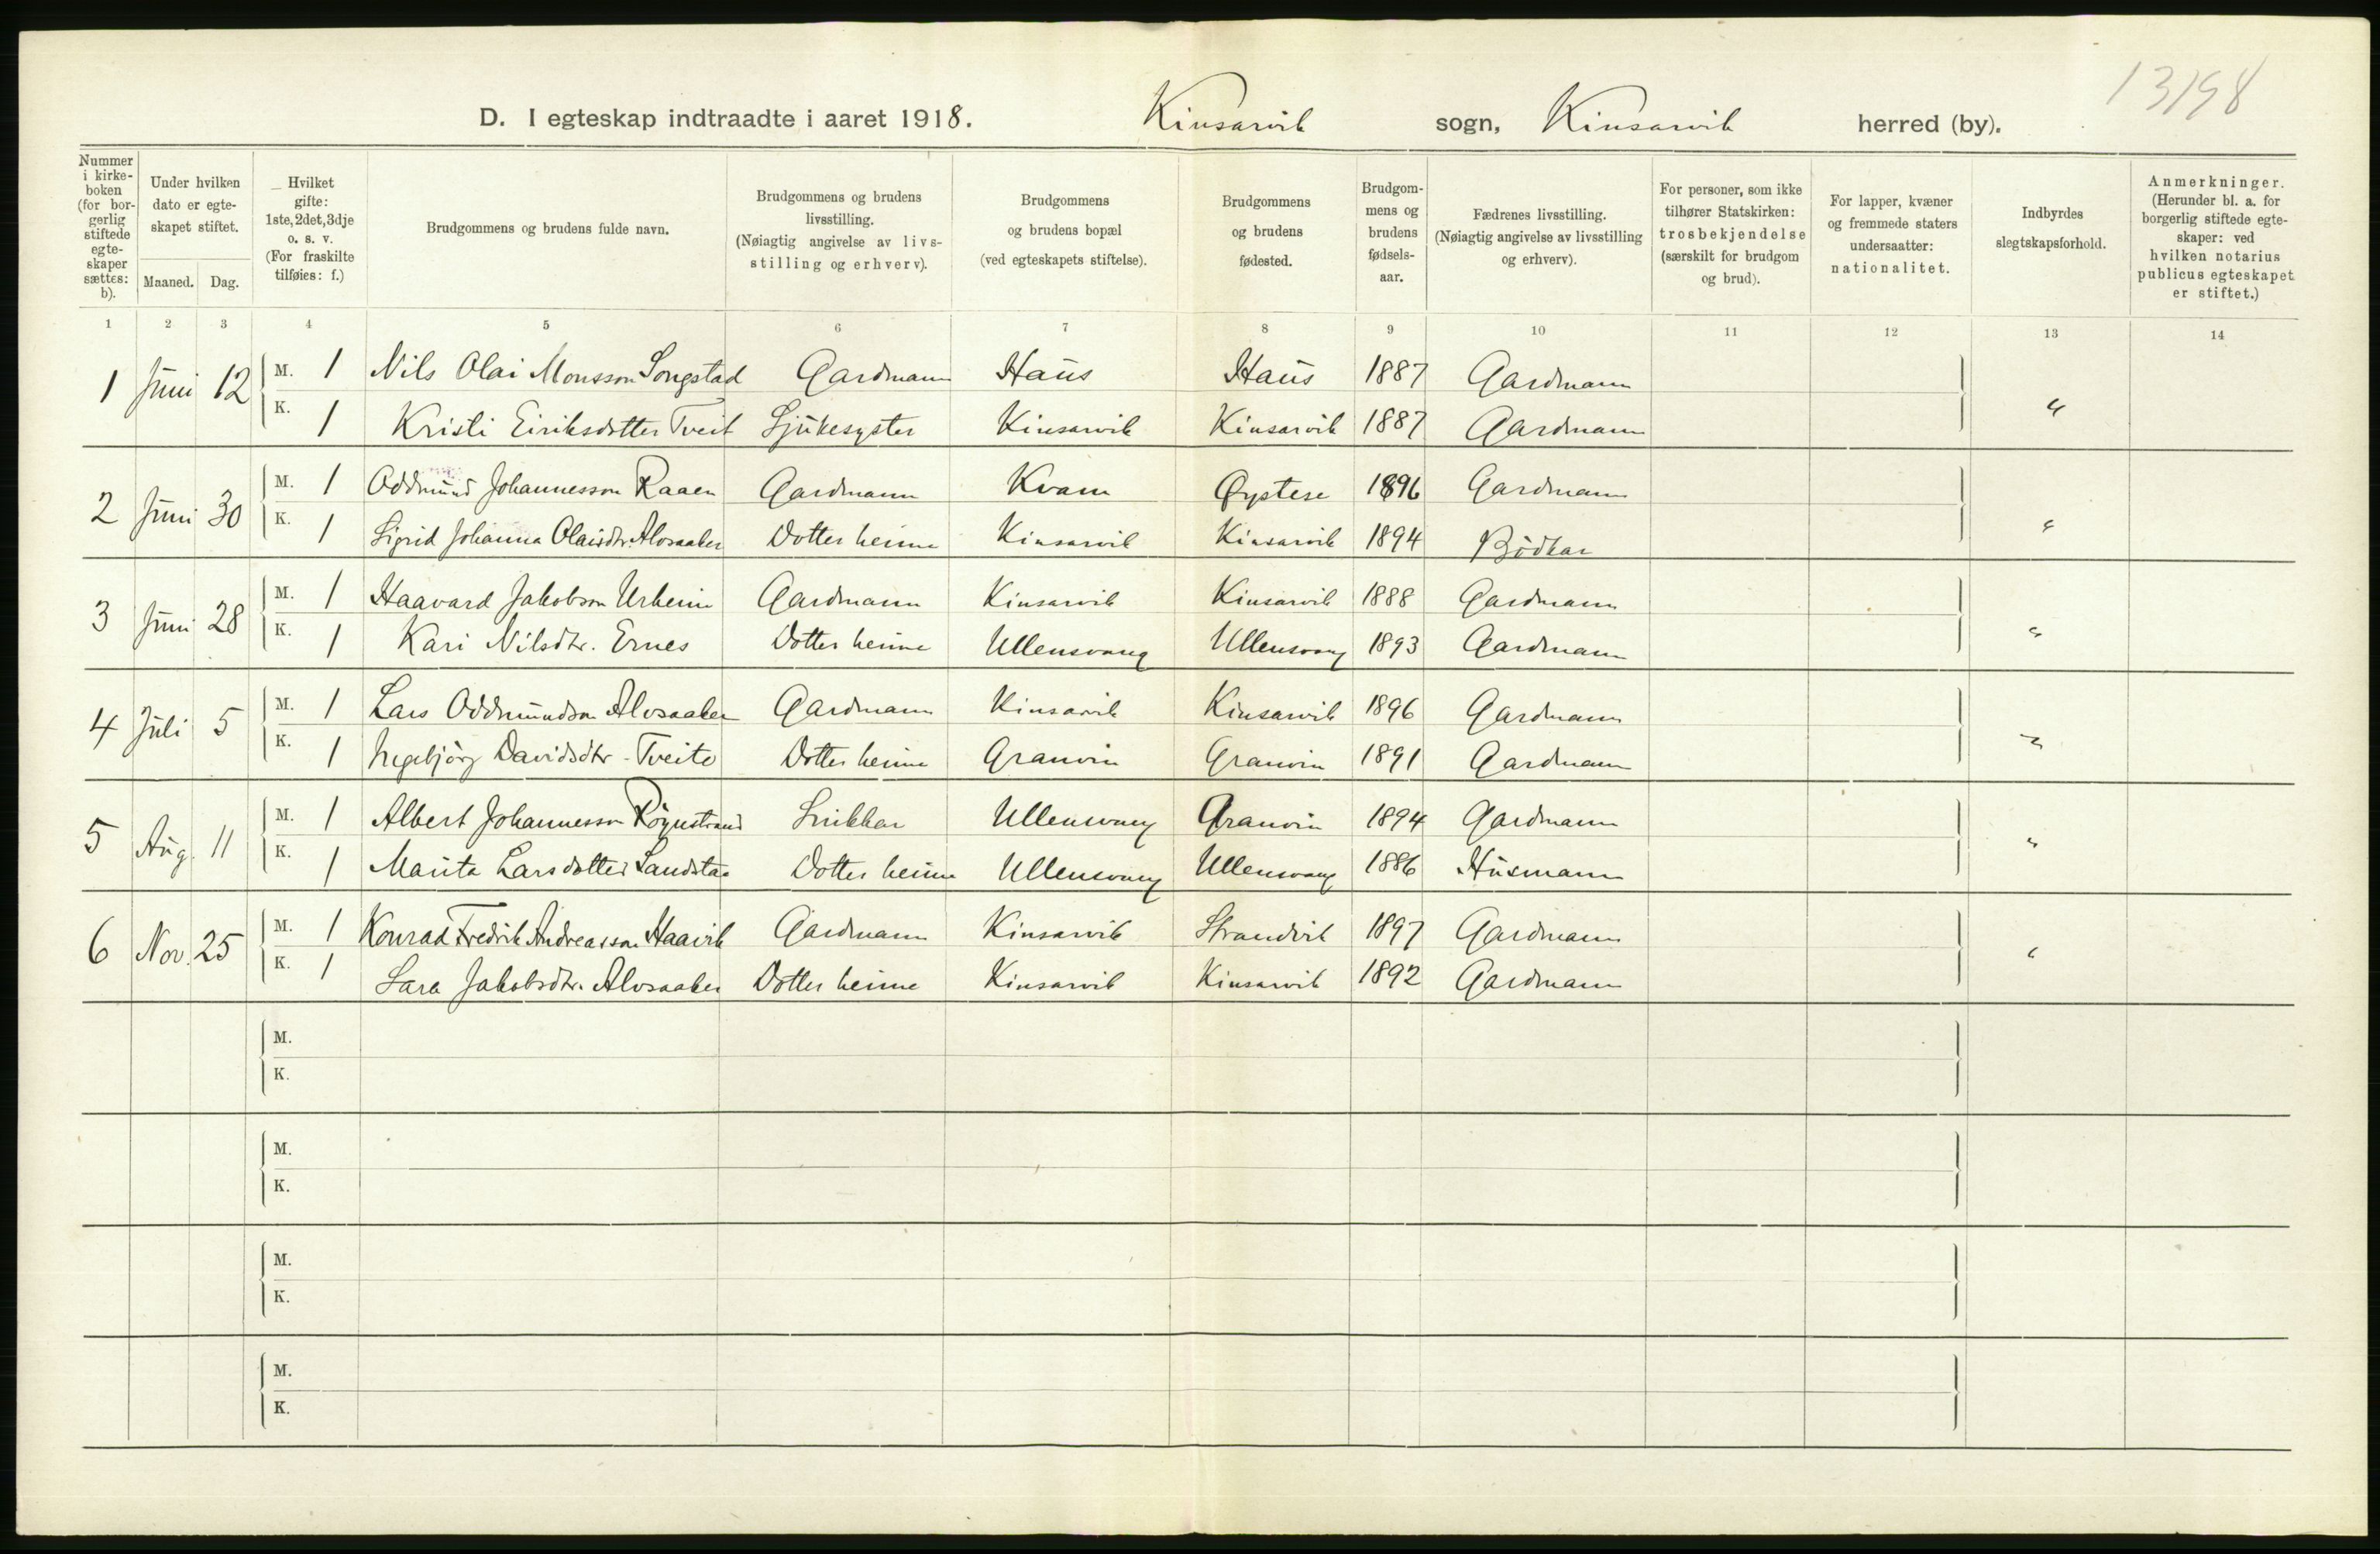 13198
D. I egteskap indtraadte i aaret 1918. Kinsarvik sogn, Kinsarvik herred (by).
Nummer i kirke-boken (for bor-gerlig stiftede egte-skaper sættes: b).
Under hvilken dato er egte-skapet stiftet.
Maaned. Dag.
Hvilket gifte: 1ste, 2det, 3dje o. s. v. (For fraskilte tilføies: f.)
Brudgommens og brudens fulde navn.
Brudgommens og brudens livsstilling. (Nøiagtig angivelse av livs-stilling og erhverv).
Brudgommens og brudens bopæl (ved egteskapets stiftelse).
Brudgommens og brudens fødested.
Brudgom-mens og brudens fødsels-aar.
Fædrenes livsstilling. (Nøiagtig angivelse av livsstilling og erhverv).
For personer, som ikke tilhører Statskirken: trosbekjendelse (særskilt for brudgom og brud).
For lapper, kvæner og fremmede staters undersaatter: nationalitet.
Indbyrdes slegtskapsforhold.
Anmerkninger. (Herunder bl. a. for borgerlig stiftede egte-skaper: ved hvilken notarius publicus egteskapet er stiftet.)
1 2 3 4 5 6 7 8 9 10 11 12 13 14
1 Juni 12 M. 1 Nils Olai Monsson Songstad Gardmann Haus Haus 1887 Gardmann
K. 1 Kristi Eiriksdotter Tveit Sjukesyster Kinsarvik Kinsarvik 1887 Gardmann "
2 Juni 30 M. 1 Oddmund Johannesson Raaen Gardmann Kvam Øystese 1896 Gardmann
K. 1 Sigrid Johanna Olaisdtr. Alvsaaker Dotter heime Kinsarvik Kinsarvik 1894 Bödkar "
3 Juni 28 M. 1 Haavard Jakobson Urheim Gardmann Kinsarvik Kinsarvik 1888 Gardmann
K. 1 Kari Nilsdtr. Ernes Dotter heime Ullensvang Ullensvang 1893 Gardmann "
4 Juli 5 M. 1 Lars Oddmundson Alvsaaker Gardmann Kinsarvik Kinsarvik 1896 Gardmann
K. 1 Ingebjörg Davidsdtr Tveito Dotter heime Granvin Granvin 1891 Gardmann "
5 Aug. 11 M. 1 Albert Johannesson Røynstrand Snikkar Ullensvang Granvin 1894 Gardmann
K. 1 Marita Larsdotter Sandstø Dotter heime Ullensvang Ullensvang 1886 Husmann "
6 Nov. 25 M. 1 Konrad Fredrik Andreasson Haavik Gardmann Kinsarvik Strandvik 1897 Gardmann
K. 1 Sara Jakobsdtr. Alvsaaker Dotter heime Kinsarvik Kinsarvik 1892 Gardmann "
M.
K.
M.
K.
M.
K.
M.
K.